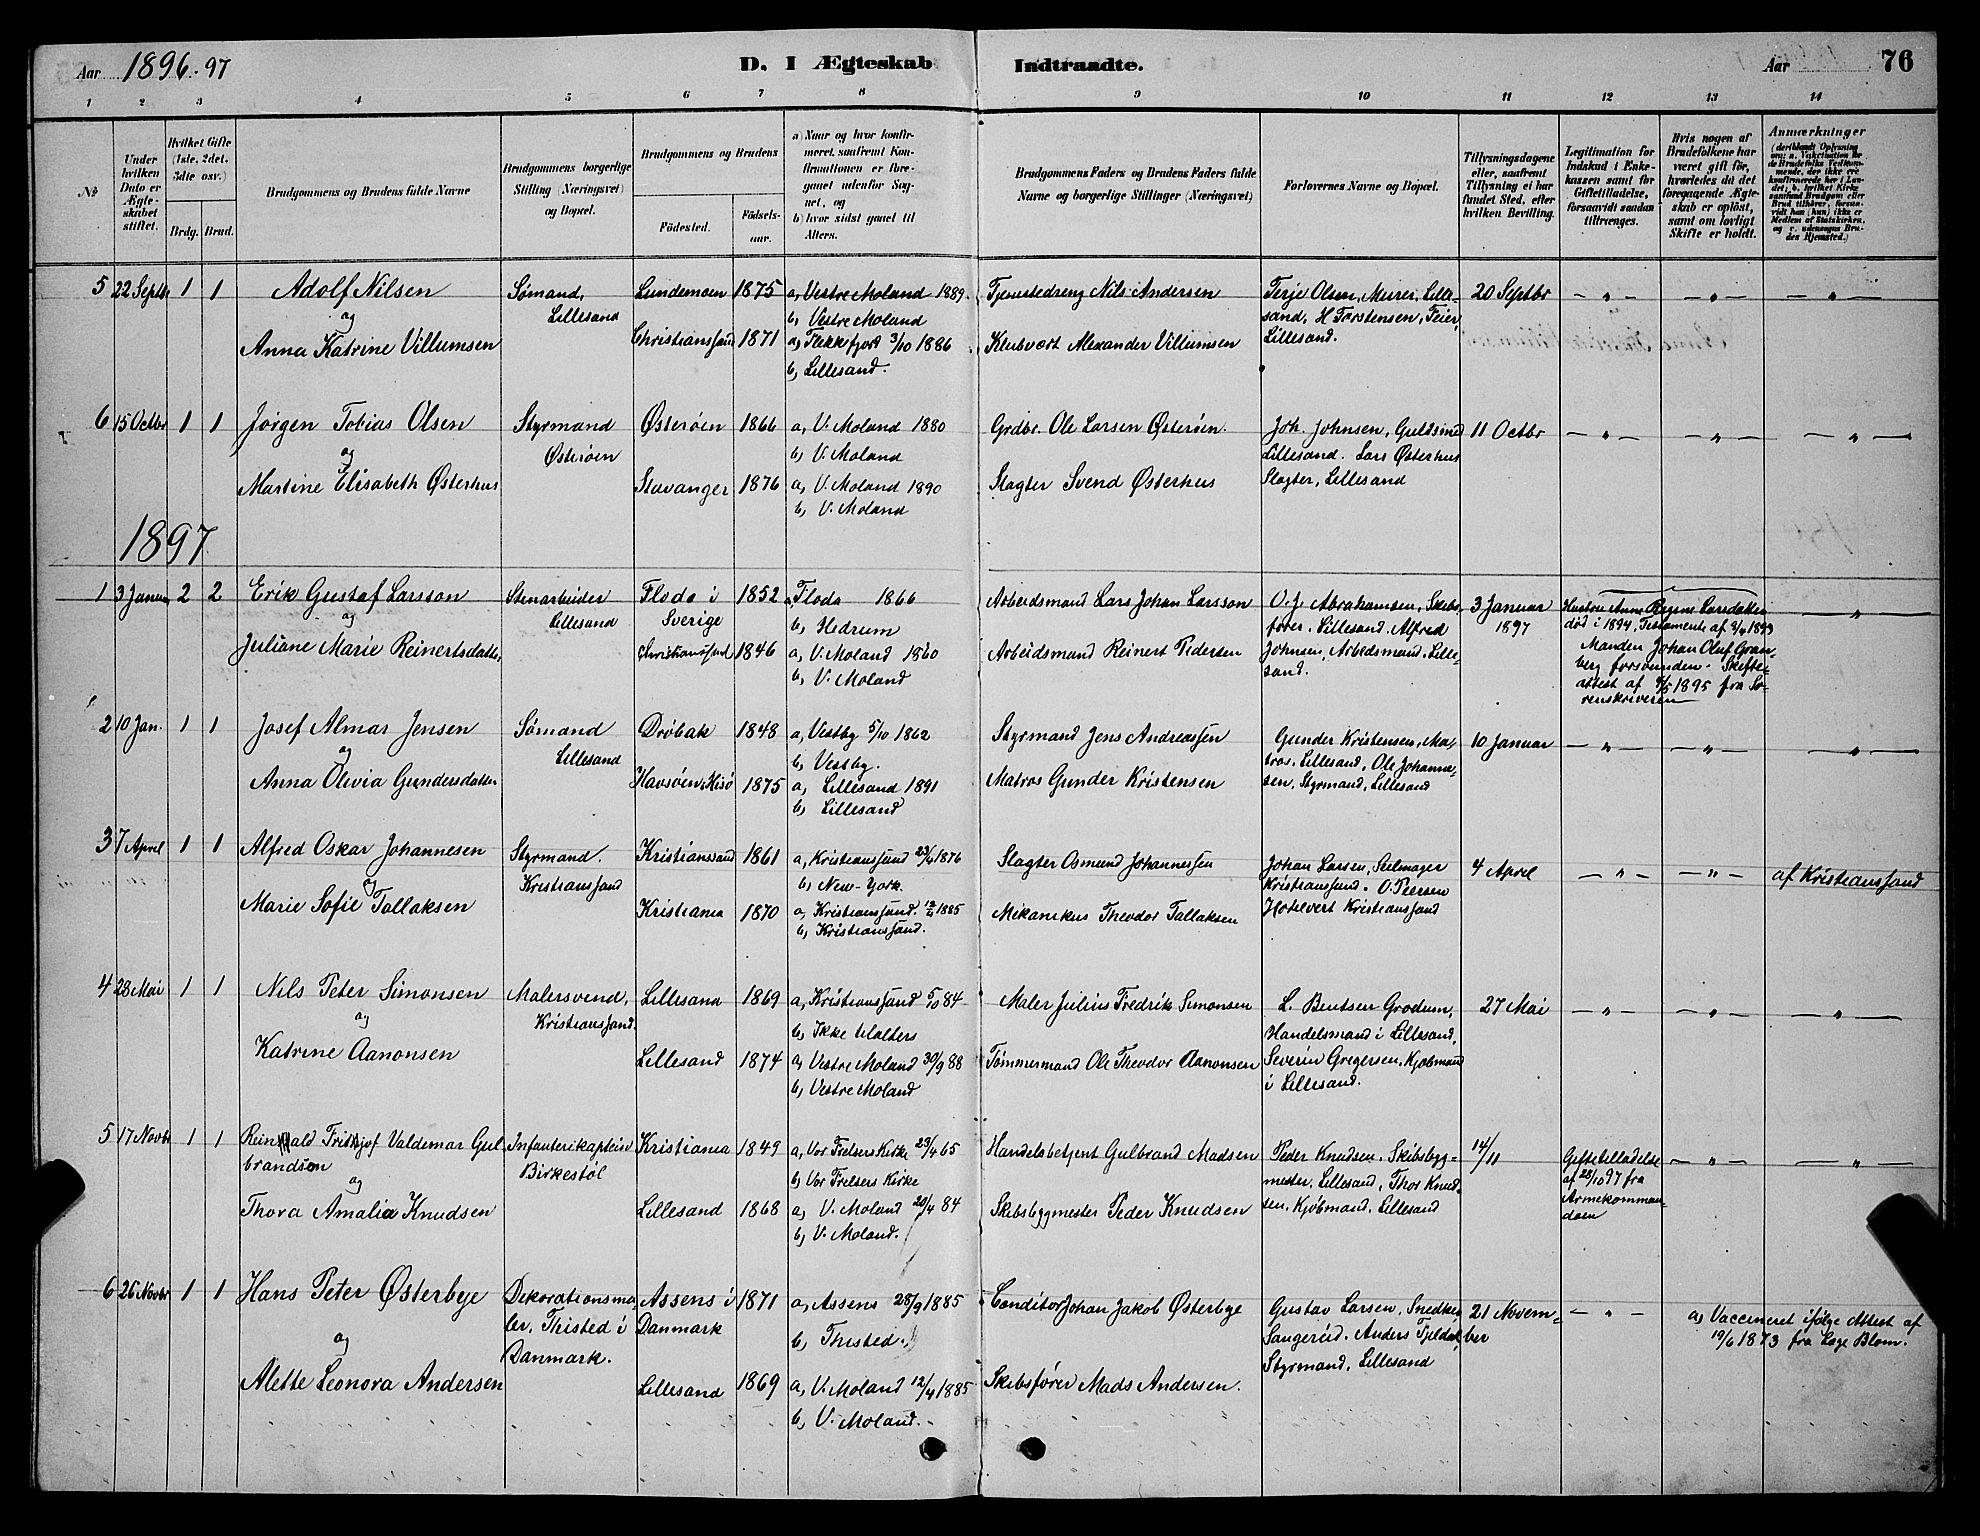 Aar 1896-97 D. I Ægteskab Indtraadte. Aar 76
1 2 3 4 5 6 7 8 9 10 11 12 13 14
No
Under hvilken Dato er Ægteskabet stiftet.
Hvilket Gifte (1ste, 2det, 3die osv.)
Brdg. Brud.
Brudgommens og Brudens fulde Navne
Brudgommens borgerlige Stilling (Næringsvei) og Bopæl.
Brudgommens og Brudens
Födested. Födsels-aar.
a) Naar og hvor konfirmeret, saafremt Konfirmationen er foregaaet udenfor Sognet, og
b) hvor sidst gaaet til Alters.
Brudgommens Faders og Brudens Faders fulde Navne og borgerlige Stillinger (Næringsvei)
Forlovernes Navne og Bopæl.
Tillysningsdagene eller, saafremt Tillysning ei har fundet Sted, efter hvilken Bevilling.
Legitimation for Indskud i Enkekassen samt for Giftetilladelse, forsaavidt saadan tiltrænges.
Hvis nogen af Brudefolkene har været gift før, hvorledes da det foregaaende Ægteskab er oplöst, samt om lovligt Skifte er holdt.
Anmærkninger
(deriblandt Oplysning om: a. Vakcination for de Brudefolks Vedkommende, der ikke ere konfirmerede her i Landet; b. hvilket Kirkesamfund Brudgom eller Brud tilhører, forsaavidt han (hun) ikke er Medlem af Statskirken, og c. udensogns Brudes Hjemsted.)
5 22 Septbr 1 1 Adolf Nilsen Sømand, Lundemoen 1875 a, Vestre Moland 1889. Tjenestedreng Nils Andersen Terje Olsen, Murer, Lille- 20 Septbr — " — — " — — " —
og Lillesand b, Vestre Moland sand, H Torstensen, Feier
Anna Katrine Villumsen Christianssand 1871 a, Flekkefjord 3/10 1886 Klubvært Alexander Villumsen Lillesand.
b, Lillesand.
6 15 Octbr 1 1 Jørgen Tobias Olsen Styrmand Østerøen 1866 a, V. Moland 1880 Grdbr. Ole Larsen Østerøen. Joh. Johnsen, Guldsmed 11 Octbr — " — — " — — " —
og Østerøen b, V. Moland Lillesand. Lars Østerhus
Martine Elisabeth Østerhus Stavanger 1876 a, V. Moland 1890 Slagter Svend Østerhus Slagter, Lillesand
b, V. Moland
1897
1 3 Januar 2 2 Erik Gustaf Larsson Stenarbeider Floda i 1852 a, Floda 1866 Arbeidsmand Lars Johan Larsson O. J. Abrahamsen, Skibs- 3 Januar Hustru Anne Regine Larsdatter — " —
og Lillesand Sverige b, Hedrum fører, Lillesand. Alfred 1897 død i 1894, Testamente af 1893
Juliane Marie Reinertsdatter, Christianssand 1846 a, V. Moland 1860 Arbeidsmand Reinert Pedersen Johnsen, Arbeidsmand, Lille- Manden Johan Oluf Gran-
b, V. Moland sand. berg forsvunden. Skifte-
attest af 1895 fra So-
renskriveren
2 10 Jan. 1 1 Josef Almar Jensen Sømand Drøbak 1848 a, Vestby 5/10 1862 Styrmand Jens Andreassen Gunder Kristensen, Ma- 10 Januar — " — — " — — " —
og Lillesand b, Vestby. tros, Lillesand, Ole Johanne-
Anna Olivia Gundersdatter Havsøen, Hisø 1875 a, Lillesand 1891 Matros Gunder Kristensen sen, Styrmand, Lillesand
b, Lillesand
3 7 April 1 1 Alfred Oskar Johannesen Styrmand. Kristianssand 1861 a, Kristianssand 23/4 1876 Slagter Osmund Johannessen Johan Larsen, Seilmager 4 April — " — — " — af Kristianssand
og Kristianssand b, New-York. Kristianssand. O. Petersen
Marie Sofie Tallaksen Kristiania 1870 a, Kristianssand. 12/4 1885 Mekanikus Theodor Tallaksen Hotelvert Kristianssand
b, Kristianssand.
4 28 Mai 1 1 Nils Peter Simonsen Malersvend, Lillesand 1869 a, Kristianssand 5/10 84 Maler Julius Fredrik Simonsen L. Bentsen Grodum, 27 Mai — " — — " — — " —
og Kristianssand. b, Ikke tilalters Handelsmand i Lillesand,
Katrine Aanonsen Lillesand 1874 a, Vestre Moland 30/9 88 Tømmermand Ole Theodor Aanonsen Severin Gregersen, Kjøbmand
b, Vestre Moland i Lillesand.
5 17 Novbr 1 1 Reinhald Frithjof Valdemar Gul- Infanterikaptein Kristiania 1849 a, Vor Frelsers Kirke 23/4 65 Handelsbetjent Gulbrand Madsen Peder Knudsen, Skibsbyg- 14/11 Giftetilladelse — " — — " —
brandsen Birkestøl b, Vor Frelsers Kirke mester, Lillesand, Thor Knud- af 22/10 97 fra
og Armekomman-
Thora Amalia Knudsen Lillesand 1868 a, V. Moland 20/4 84 Skibsbygmester Peder Knudsen sen, Kjøbmand, Lillesand doen
b, V. Moland.
6 26 Novbr 1 1 Hans Peter Østerbye Dekorationsma- Assens i 1871 a, Assens 28/9 1885 Conditor Johan Jakob Østerbye Gustav Larsen, Snedker, 21 Novem- — " — a, Vaccineret ifølge Attest af
og ler, Thisted i Danmark b, Thisted. Sangerød. Anders Fjeldal, ber 19/6 1873 fra Læge Blom.
Danmark. Styrmand, Lillesand
Alette Leonora Andersen Lillesand 1869 a, V. Moland 12/4 1885 Skibsfører Mads Andersen.
b, V. Moland.